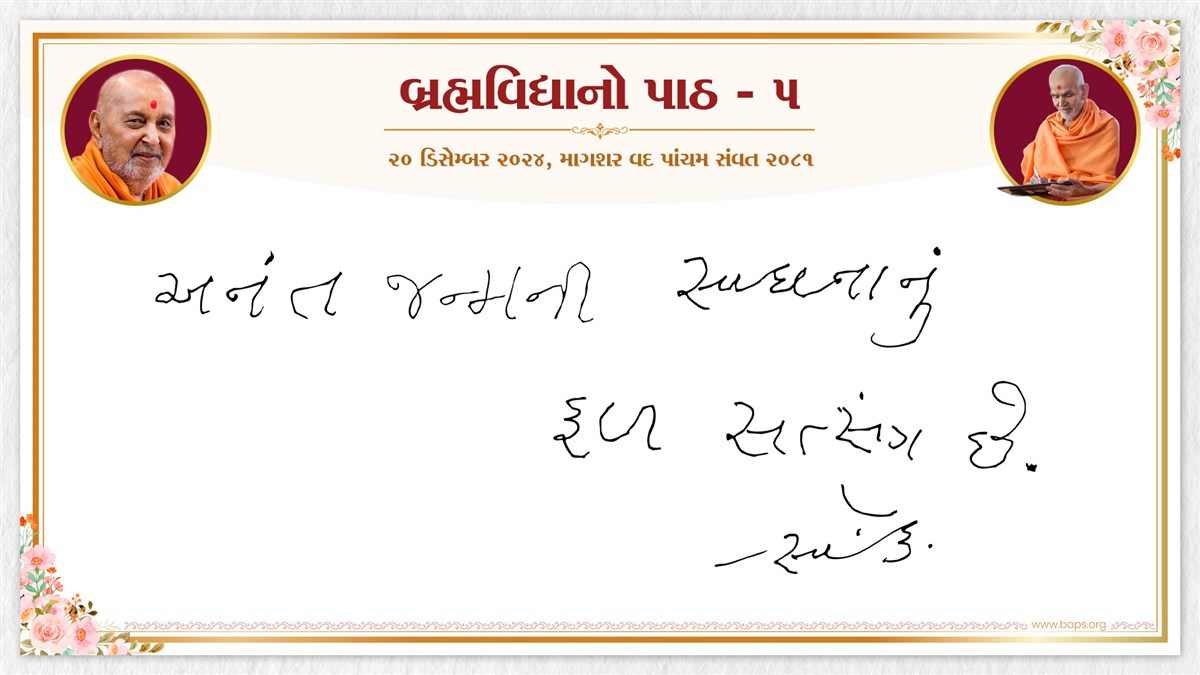 બ્રહ્મવિદ્યાનો પાઠ - ૫
૨૦ ડિસેમ્બર ૨૦૨૪, માગશર વદ પાંચમ સંવત ૨૦૮૧
અનંત જન્મની સાધનાનું
ફળ સત્સંગ છે.
www.baps.org